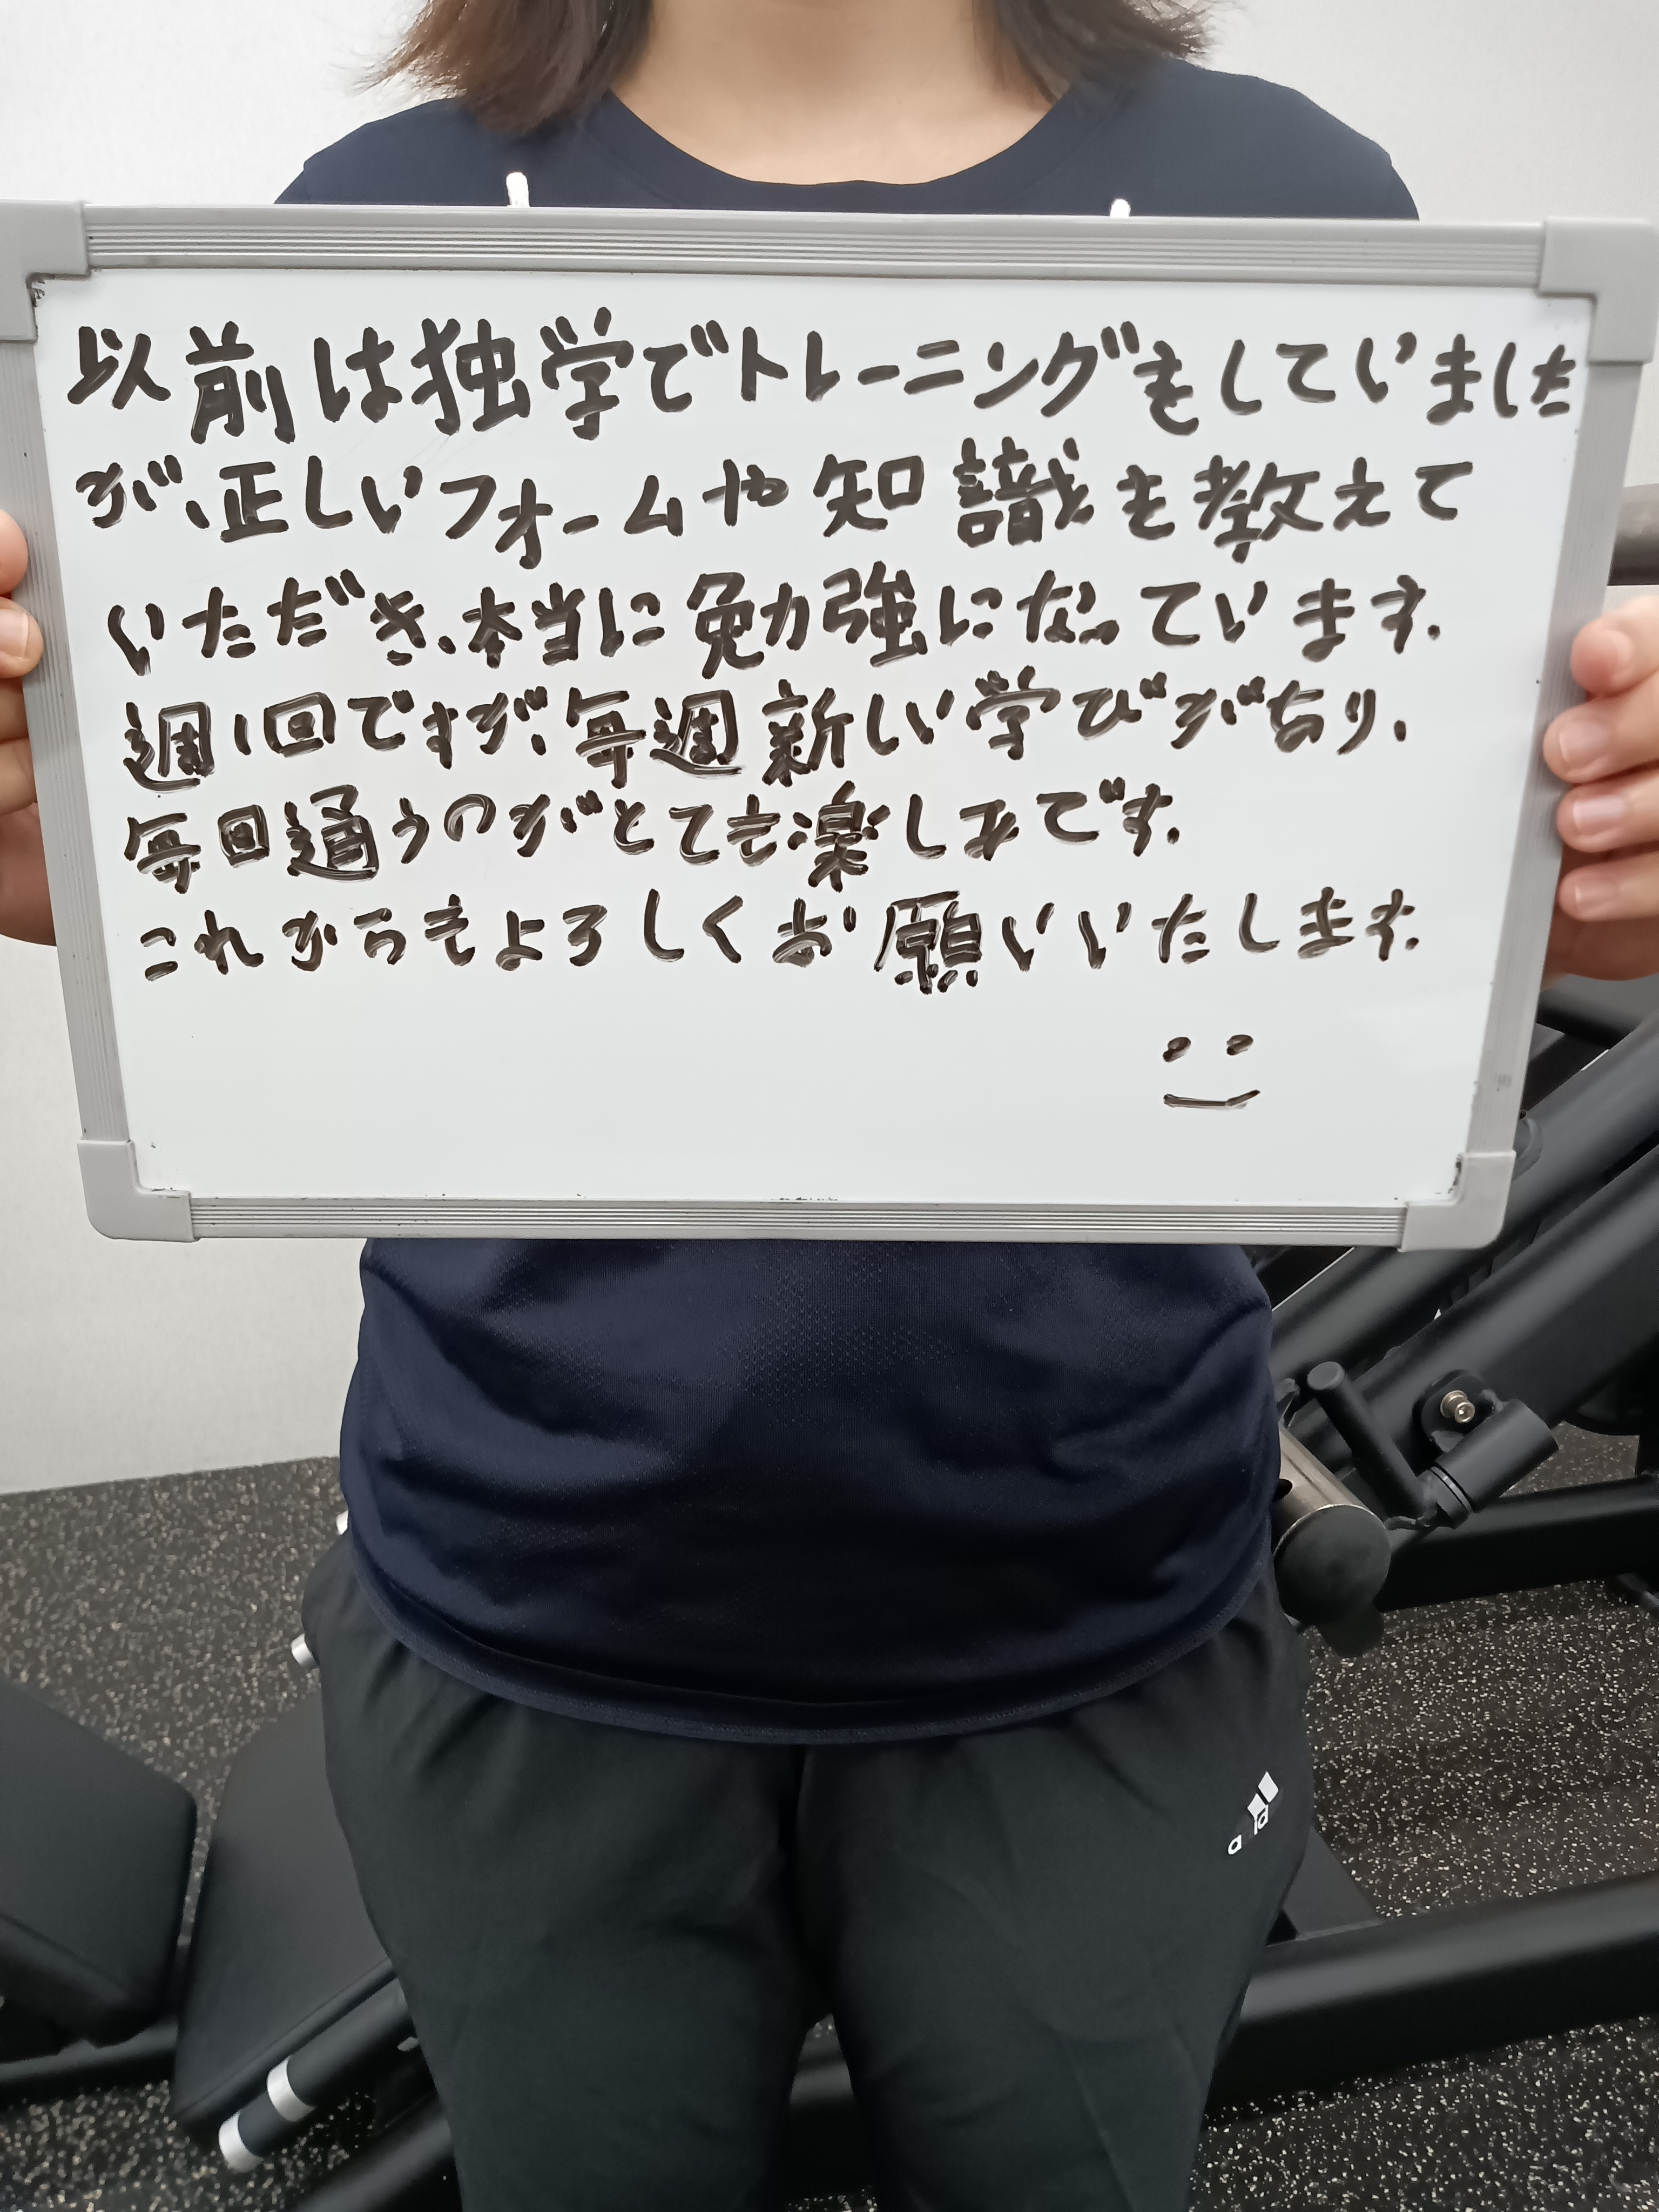 以前は独学でトレーニングをしていました
が、正しいフォームや知識を教えて
いただき、本当に勉強になっています。
週1回ですが、毎週新しい学びがあり、
毎回通うのがとても楽しみです。
これからもよろしくお願いいたします。